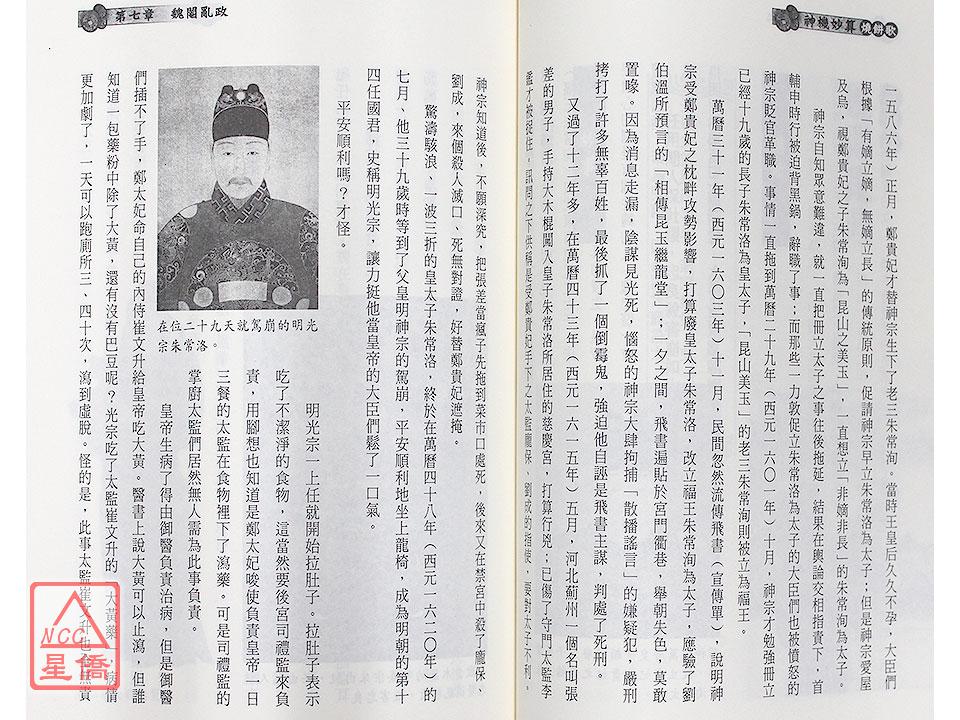 神機妙算燒餅歌
一五八六年）正月，鄭貴妃才替神宗生下了老三朱常洵。當時王皇后久久不孕，大臣們
根據「有嫡立嫡，無嫡立長」的傳統原則，促請神宗早立朱常洛為太子；但是神宗愛屋
及烏，視鄭貴妃之子朱常洵為「昆山之美玉」，一直想立「非嫡非長」的朱常洵為太子。
神宗自知眾意難違，就一直把冊立太子之事往後拖延，結果在輿論交相指責下，首
輔申時行被迫背黑鍋，辭職了事；而那些一力敦促立朱常洛為太子的大臣們也被憤怒的
神宗貶官革職。事情一直拖到萬曆二十九年（西元一六０一年）十月，神宗才勉強冊立
已經十九歲的長子朱常洛為皇太子，「昆山美玉」的老三朱常洵則被立為福王。
萬曆三十一年（西元一六０三年）十一月，民間忽然流傳飛書（宣傳單），說明神
宗受鄭貴妃之枕畔攻勢影響，打算廢皇太子朱常洛，改立福王朱常洵為太子，應驗了劉
伯溫所預言的「相傳昆玉繼龍堂」；一夕之間，飛書遍貼於宮門衢巷，舉朝失色，莫敢
置喙。因為消息走漏，陰謀見光死，惱怒的神宗大肆拘捕「散播謠言」的嫌疑犯，嚴刑
拷打了許多無辜百姓，最後抓了一個倒霉鬼，強迫他自誣是飛書主謀，判處了死刑。
又過了十二年多，在萬曆四十三年（西元一六一五年）五月，河北薊州一個名叫張
差的男子，手持大木棍闖入皇子朱常洛所居住的慈慶宮，打算行兇；已傷了守門太監李
鑑才被捉住，訊問之下供稱是受鄭貴妃手下之太監龐保、劉成的指使，要對太子不利。
第七章　魏閹亂政
神宗知道後，不願深究，把張差當瘋子先拖到菜市口處死，後來又在禁宮中殺了龐保、
劉成，來個殺人滅口、死無對證，好替鄭貴妃遮掩。
驚濤駭浪、一波三折的皇太子朱常洛，終於在萬曆四十八年（西元一六二０年）的
七月、他三十九歲時等到了父皇明神宗的駕崩，平安順利地坐上龍椅，成為明朝的第十
四任國君，史稱明光宗，讓力挺他當皇帝的大臣們鬆了一口氣。
平安順利嗎？才怪。
在位二十九天就駕崩的明光
宗朱常洛。
明光宗一上任就開始拉肚子。拉肚子表示
吃了不潔淨的食物，這當然要後宮司禮監來負
責，用腳想也知道是鄭太妃唆使負責皇帝一日
三餐的太監在食物裡下了瀉藥。可是司禮監的
掌廚太監們居然無人需為此事負責。
皇帝生病了得由御醫負責治病，但是御醫
們插不了手，鄭太妃命自己的內侍崔文升給皇帝吃大黃。醫書上說大黃可以止瀉，但誰
知道一包藥粉中除了大黃，還有沒有巴豆呢？光宗吃了太監崔文升的「大黃藥」，病情
更加劇了，一天可以跑廁所三、四十次，瀉到虛脫。怪的是，此事太監崔文升也無責
NCC
星僑